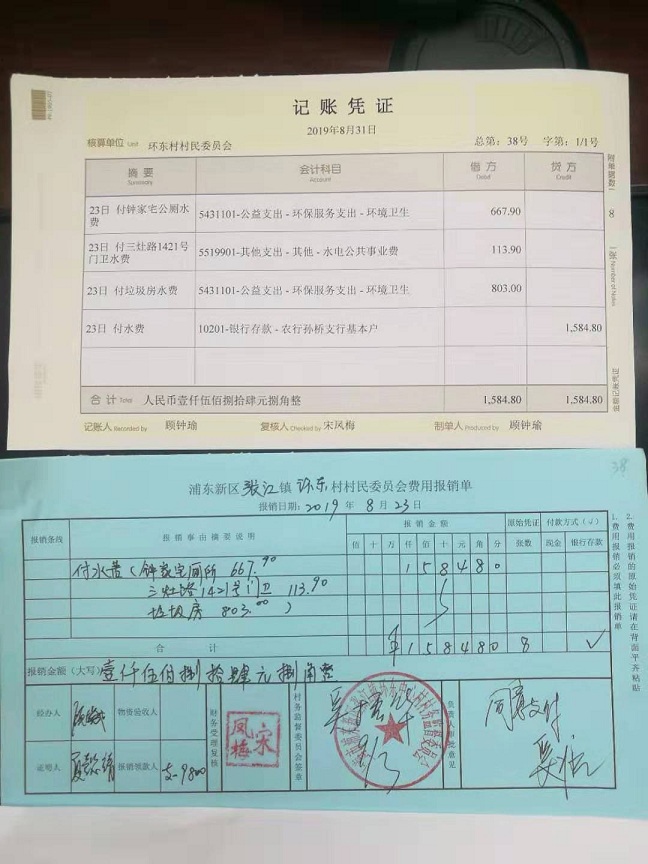 记账凭证
2019年8月31日
核算单位 Unit 环东村村民委员会 总第：38号 字第：1/1号
摘要 会计科目 借方 贷方
Summary Account Debit Credit
23日 付钟家宅公厕水费 5431101-公益支出-环保服务支出-环境卫生 667.90
23日 付三灶路1421号门卫水费 5519901-其他支出-其他-水电公共事业费 113.90
23日 付垃圾房水费 5431101-公益支出-环保服务支出-环境卫生 803.00
23日 付水费 10201-银行存款-农行孙桥支行基本户 1,584.80
合计 Totals 人民币壹仟伍佰捌拾肆元捌角整 1,584.80 1,584.80
记账人 Recorded by 顾钟瑜 复核人 Checked by 宋凤梅 制单人 Produced by 顾钟瑜
附单据数 8
Number of Notes
38
浦东新区张江镇环东村村民委员会费用报销单
报销日期：2019年8月23日
报销条线 报销事由摘要说明 报销金额 原始凭证 付款方式（√）
佰 十 万 仟 佰 十 元 角 分 张数 现金 银行存款
付水费（钟家宅厕所 667.90 1 5 8 4 8 0
三灶路1421号门卫 113.90
垃圾房 803.00）
合计 ¥ 1 5 8 4 8 0 8 √
报销金额（大写）壹仟伍佰捌拾肆元捌角整
经办人 物资验收人 财务受理复核 宋凤梅 村务监督委员会签章 负责人审批意见 同意支付
证明人 报销领款人 支-9800
1.费用报销必须填此报销单
2.费用报销的原始凭证请在背面平齐粘贴